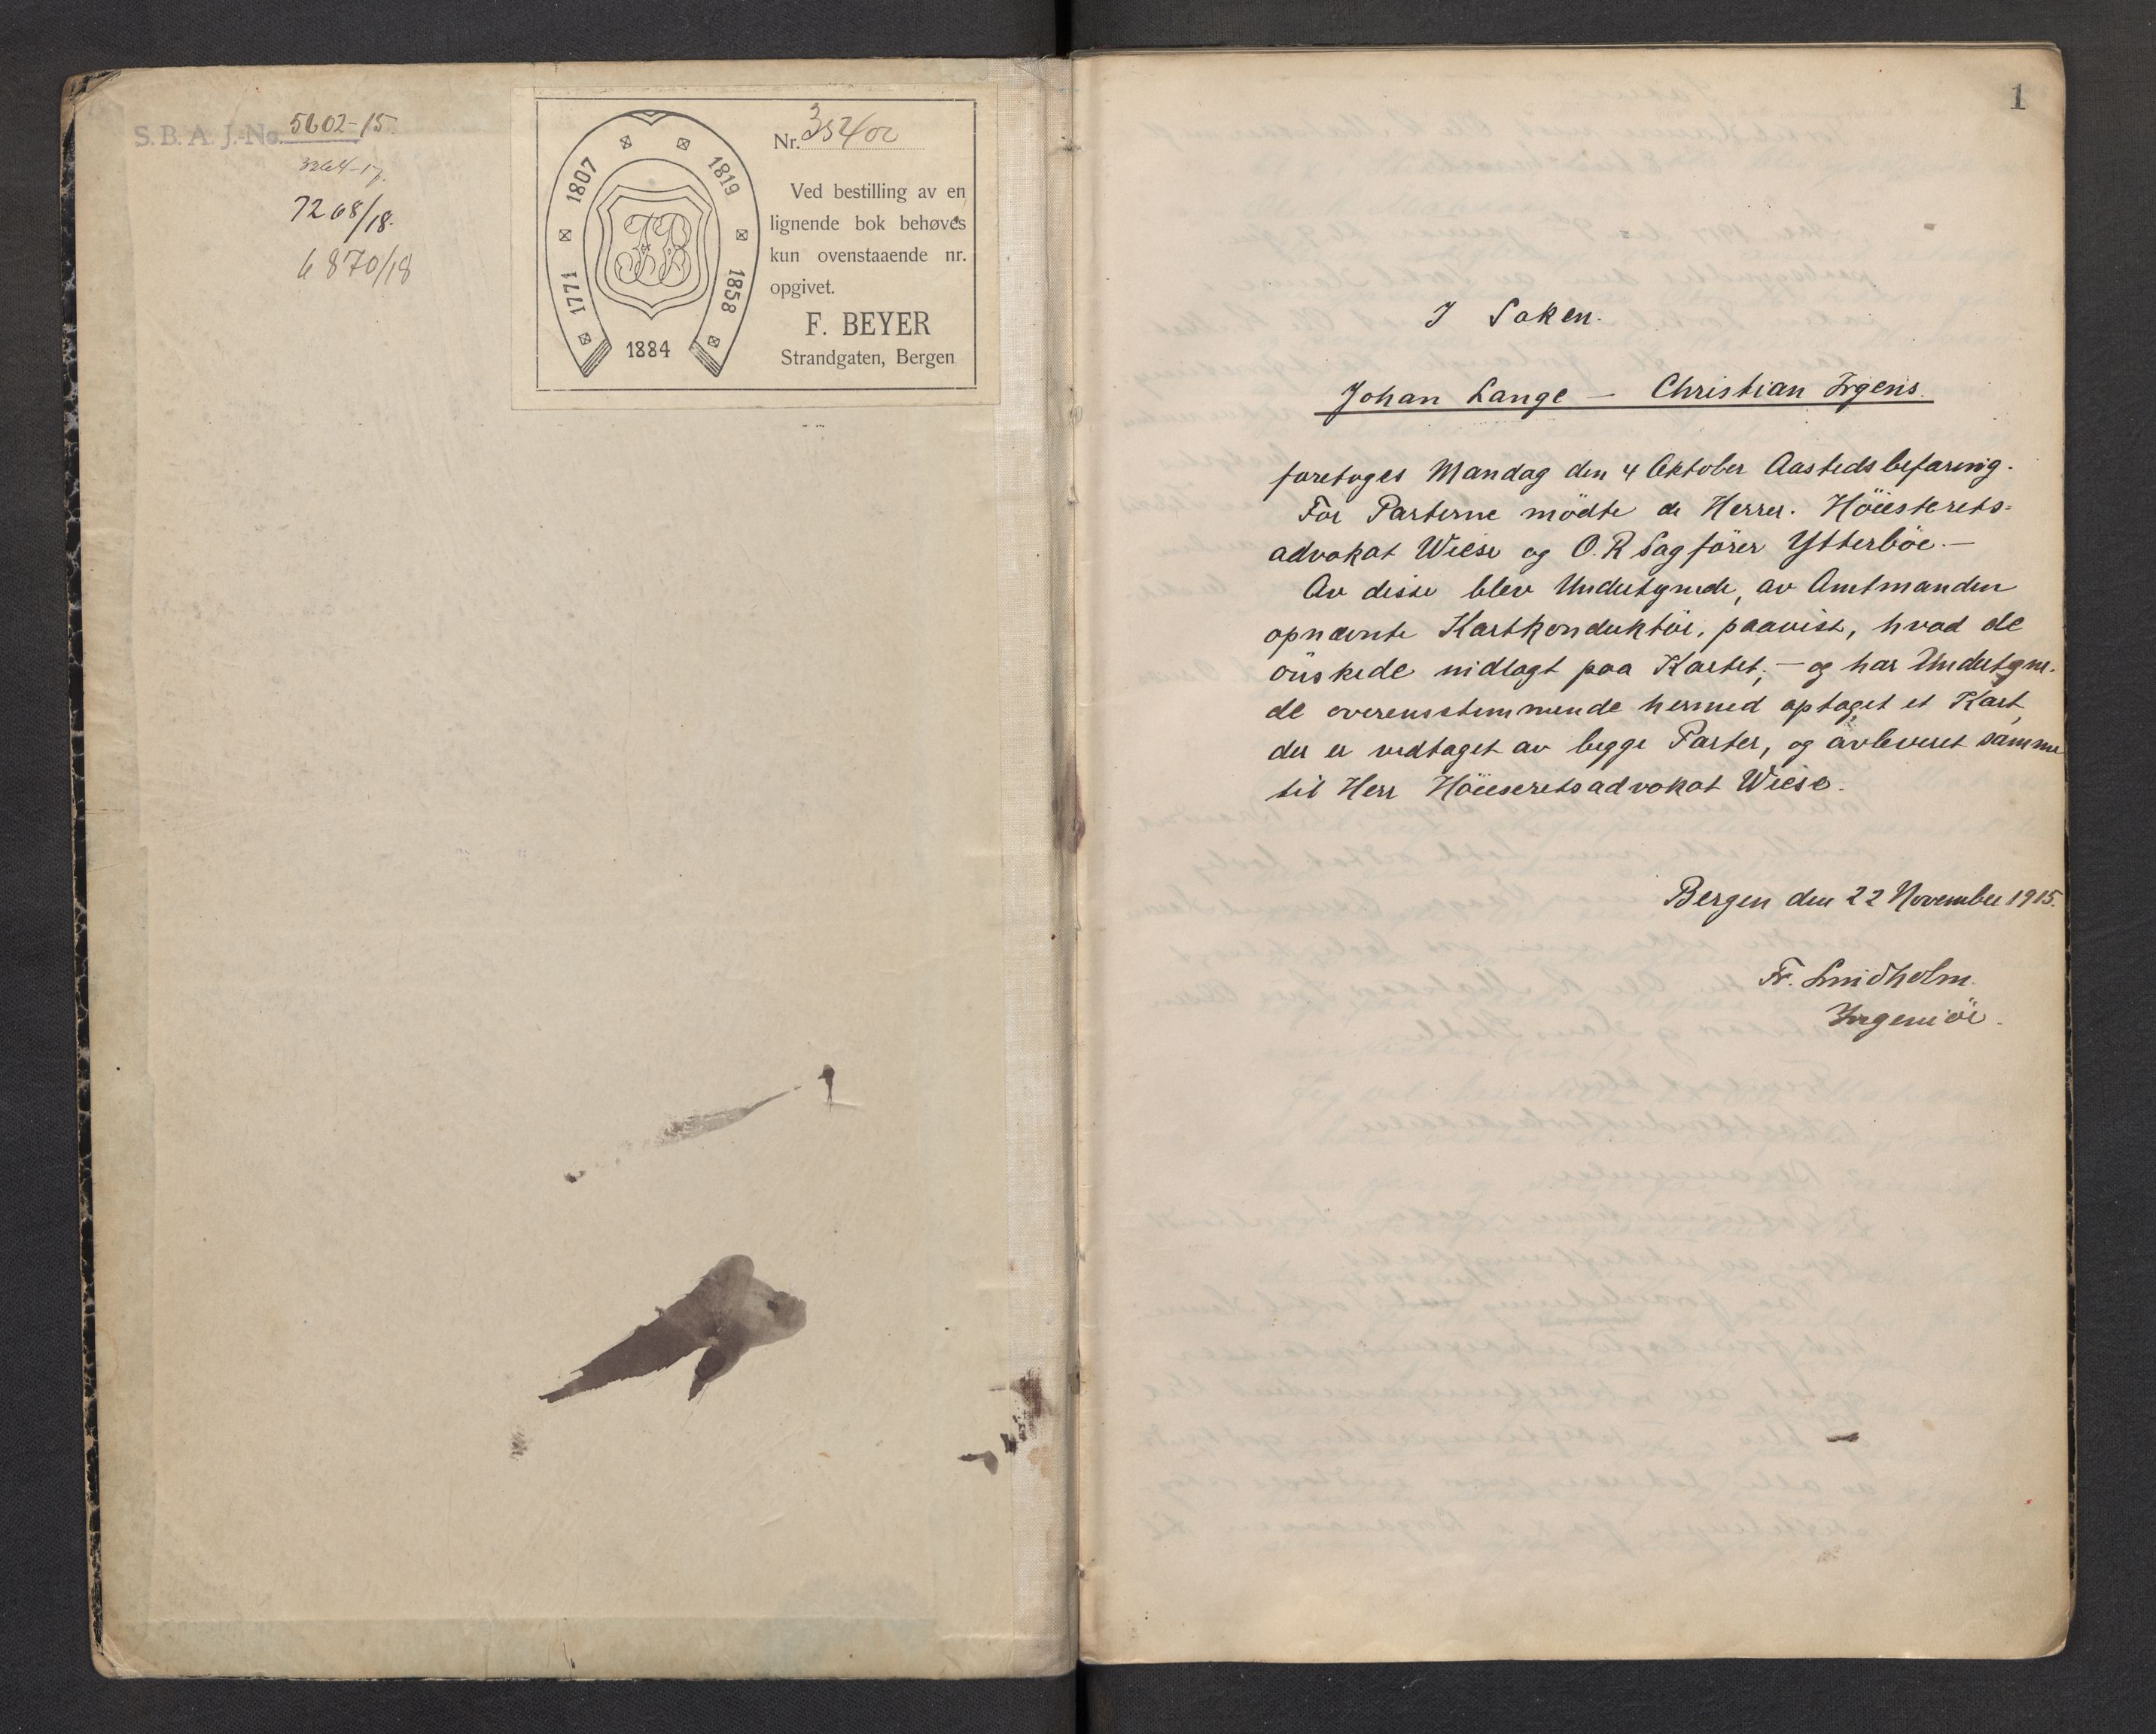 S. B. A. J.-No. 5602-15
3264-17.
7268/18.
6870/18
1771 1807 1819 1858
1884
FB
Nr. 35400
Ved bestilling av en
lignende bok behøves
kun ovenstaaende nr.
opgivet.
F. BEYER
Strandgaten, Bergen
1
I Saken.
Johan Lange — Christian Irgens.
foretoges Mandag den 4 Oktober Aastedsbefaring.
For Parterne mödte de Herrer. Höiesterets-
advokat Wiese og O.R Sagförer Ytterböe.—
Av disse blev Undertegnede, av Amtmanden
opnævnte Kartkonduktör, paavist, hvad de
önskede nidlagt paa Kartet; — og har Undertegne-
de overensstemmende hermed optaget et Kart,
der er vedtaget av begge Parter, og avleveret samme
til Herr Höieseretsadvokat Wiese.
Bergen den 22 November 1915.
Fr. Lindholm.
Ingeniör.